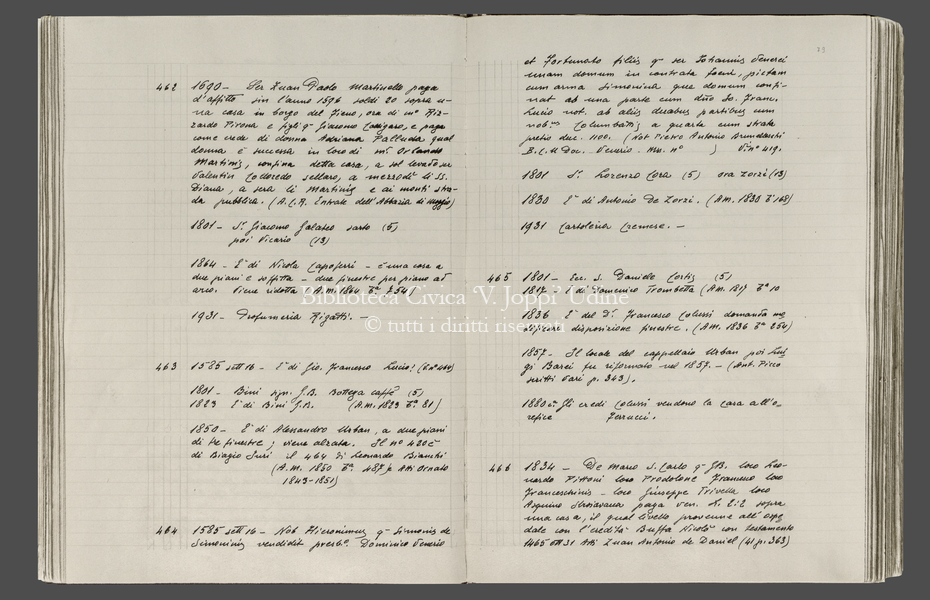 462 1690 - Ser Zuan Paolo Martinello paga
d'affitto sin l'anno 1596 soldi 20 sopra u-
na casa in borgo del fieno, ora di mº Riz-
zardo Pirona e figli qº Giacomo, e paga
come erede di donna Adriana Palluda qual
donna è successa in loco di mº Orlando
Martinis, confina detta casa, a sol levado ser
Valentin Colloredo sellaro, a mezzodì li SS.
Diana, a sera li Martinis e ai monti stra-
da pubblica. (A.C.A. Entrate dell'Abbazia di)
1801 - Sº Giacomo Galateo sarto (5)
poi Vicario (13)
1864 - E' di Nicola Capoferri - è una casa a
due piani e soffitta - due finestre per piano ad
arco. Viene ridotta (A.M. 1864 254)
1931 - Profumeria Rigatti. -
463 1585 sett 16 - E' di Gio. Francesco Lucio!
1801 - Bini sign. G.B. Bottega caffè (5)
1823 E' di Bini G.B. (A.M. 1823 81)
1850 - E' di Alessandro Urban, a due piani
di tre finestre; viene alzata. Il nº 420 è
di Biagio il 464 di Leonardo Bianchi
(A.M. 1850 487/ Atti Ornato
1843-1851)
464 1585 sett 16 - Nob. Hieronimus qº Simonis de
Simoninis vendidit presbº. Dominico Venerio
79
et Fortunato filiis qº ser Johannis Venerei
unam domum in contrata foeni, pictam
cum arma Simonina que domus confi-
nat ab una parte cum dño Jo. Franc.
Lucio not. ab aliis duabus partibus cum
nob. Columbattis a quarta cum strata
pretio duc. 1100. (Not Pietro Antonio
B.C.U. Doc. Venerio. Mss. nº ) Vi nº 419.
1801 Sº. Lorenzo Cora (5) ora Zorzi (13)
1830 E' di Antonio De Zorzi. (A.M. 1830 168)
1931 Cartoleria Cremese. -
465 1801 - Ecc. S. Daniele Cortis (5)
1817 - E' di Domenico Trombetta (A.M. 1817 10
1836 E' del Dº. Francesco Colussi domanda
disposizione finestre. (A.M. 1836 254)
1857 - Il locale del cappellaio Urban poi Lui-
gi Barei fu riformato nel 1857. - (Ant. Picco
scritti vari p. 343).
1880 Gli eredi Colussi vendono la casa all'o-
refice Ferrucci.
466 1834 - De Marco S. Carlo qº GB. loco Leo-
nardo Pittoni loco Prodolone Francesco loco
Franceschinis - loco Giuseppe Trivella loco
Asquino paga ven. L. 2:2 sopra
una casa, il qual livello provenne all'ospe
dale con l'eredità Buffa Nicolò con testamento
1465 ott 31 Atti Zuan Antonio de Daniel (41 p. 363)
Biblioteca Civica 'V. Joppi' Udine
© tutti i diritti riservati